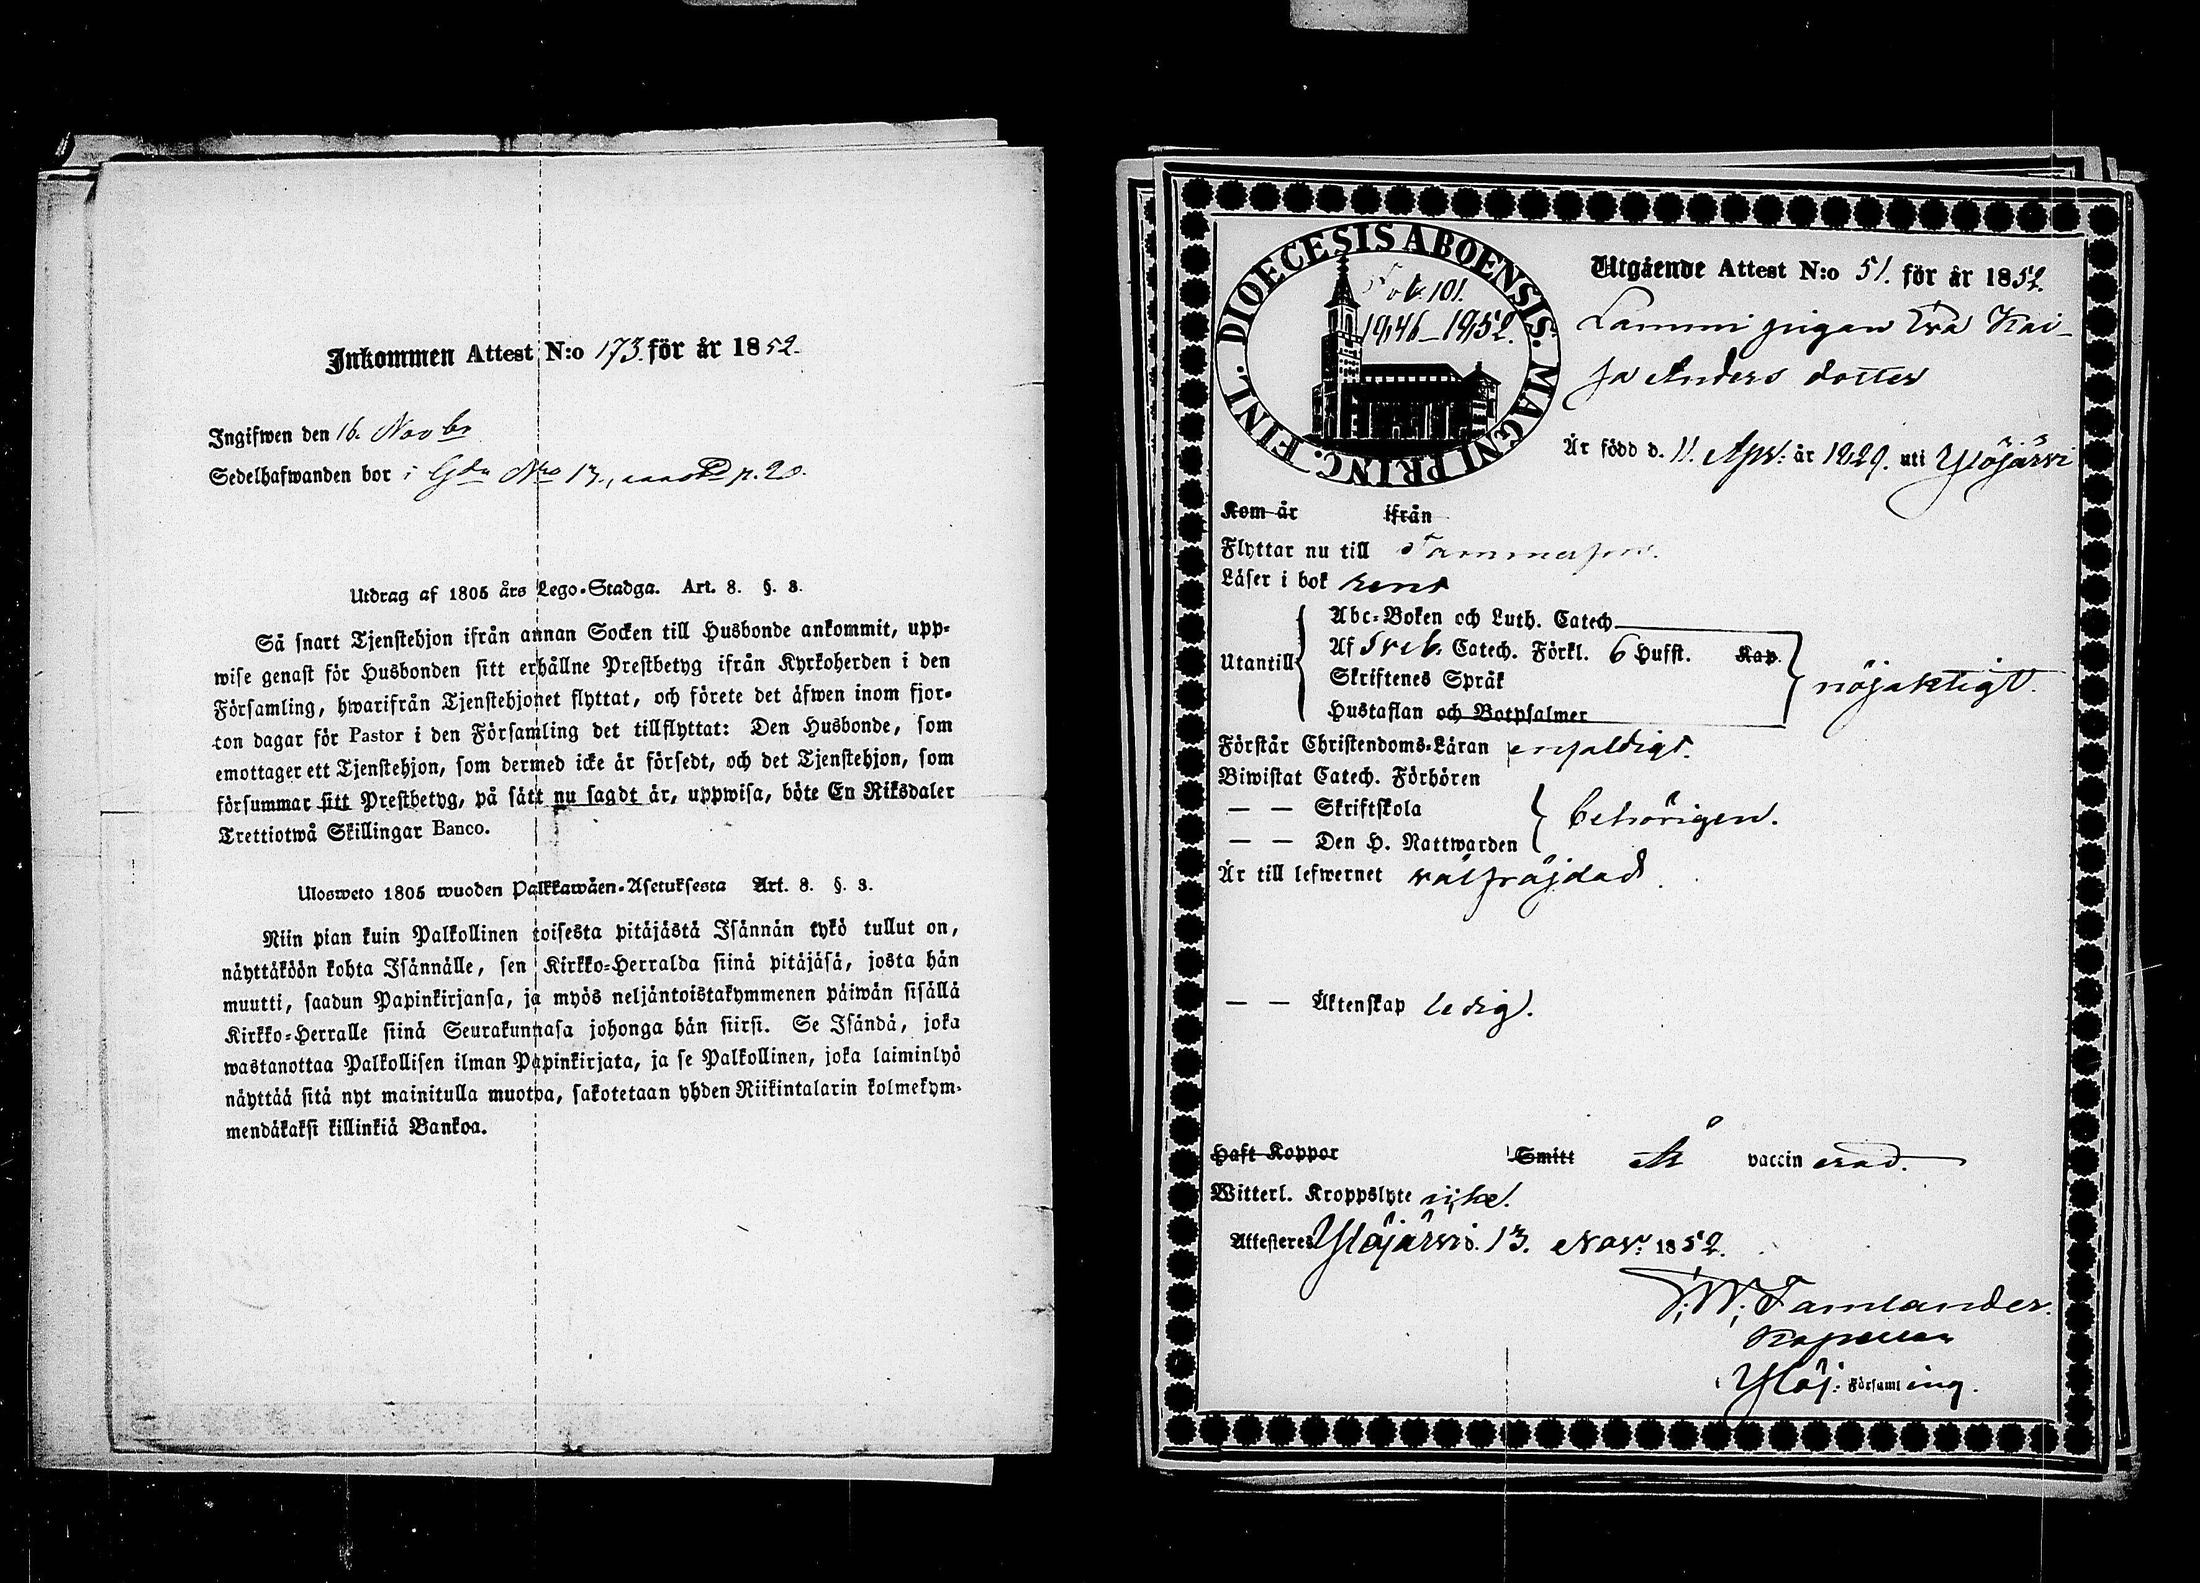 Inkommen Attest N:o 173. för år 1852.
Ingifwen den 16. Novbr
Sedelhafwanden bor i Gdn Nro 13., p. 20.
Utdrag af 1805 års Lego-Stadga. Art. 8. §. 3.
Så snart Tjenstehjon ifrån annan Socken till Husbonde ankommit, upp-
wise genast för Husbonden sitt erhållne Prestbetyg ifrån Kyrkoherden i den
Församling, hwarifrån Tjenstehjonet flyttat, och förete det äfwen inom fjor-
ton dagar för Pastor i den Församling det tillflyttat: Den Husbonde, som
emottager ett Tjenstehjon, som dermed icke är försedt, och det Tjenstehjon, som
försummar sitt Prestbetyg, på sätt nu sagdt är, uppwisa, böte En Riksdaler
Trettiotwå Skillingar Banco.
Ulosweto 1805 wuoden Palkkawäen-Asetuksesta Art. 8. §. 3.
Niin pian kuin Palkollinen toisesta pitäjästä Isännän tykö tullut on,
näyttäköön kohta Isännälle, sen Kirkko-Herralda siinä pitäjäsä, josta hän
muutti, saadun Papinkirjansa, ja myös neljäntoistakymmenen päiwän sisällä
Kirkko-Herralle siinä Seurakunnasa johonga hän siirsi. Se Isändä, joka
wastanottaa Palkollisen ilman Papinkirjata, ja se Palkollinen, joka laiminlyö
näyttää sitä nyt mainitulla muotoa, sakotetaan yhden Riikintalarin kolmekym-
mendäkaksi killinkiä Bankoa.
DIOECESIS ABOENSIS. MAGNI PRINC. FINL.
Fol. 101.
1846-1852.
Utgående Attest N:o 51. för år 1852.
Lammi pigan Eva Kai-
sa Anders dotter
Är född d. 11. Apr. år 1829. uti Ylöjärvi
Kom år ifrån
Flyttar nu till Tammerfors.
Läser i bok rent
Utantill
Abc-Boken och Luth. Catech
Af Sveb. Catech. Förkl. 6 Hufst. Kap.
Skriftenes Språk
Hustaflan och Botpsalmer
nöjaktigt.
Förstår Christendoms-Läran enfaldigt.
Biwistat Catech. Förhören
— — Skriftskola
— — Den H. Nattwarden
behörigen.
Är till lefwernet välfräjdad.
— — Äktenskap ledig.
Haft Koppor Smitt Är vaccinerad.
Witterl. Kroppslyte icke.
Attesteres Ylöjärvi d. 13. Nov. 1852.
F. W. Tamlander.
Kapellan
i Ylöj: Församling.